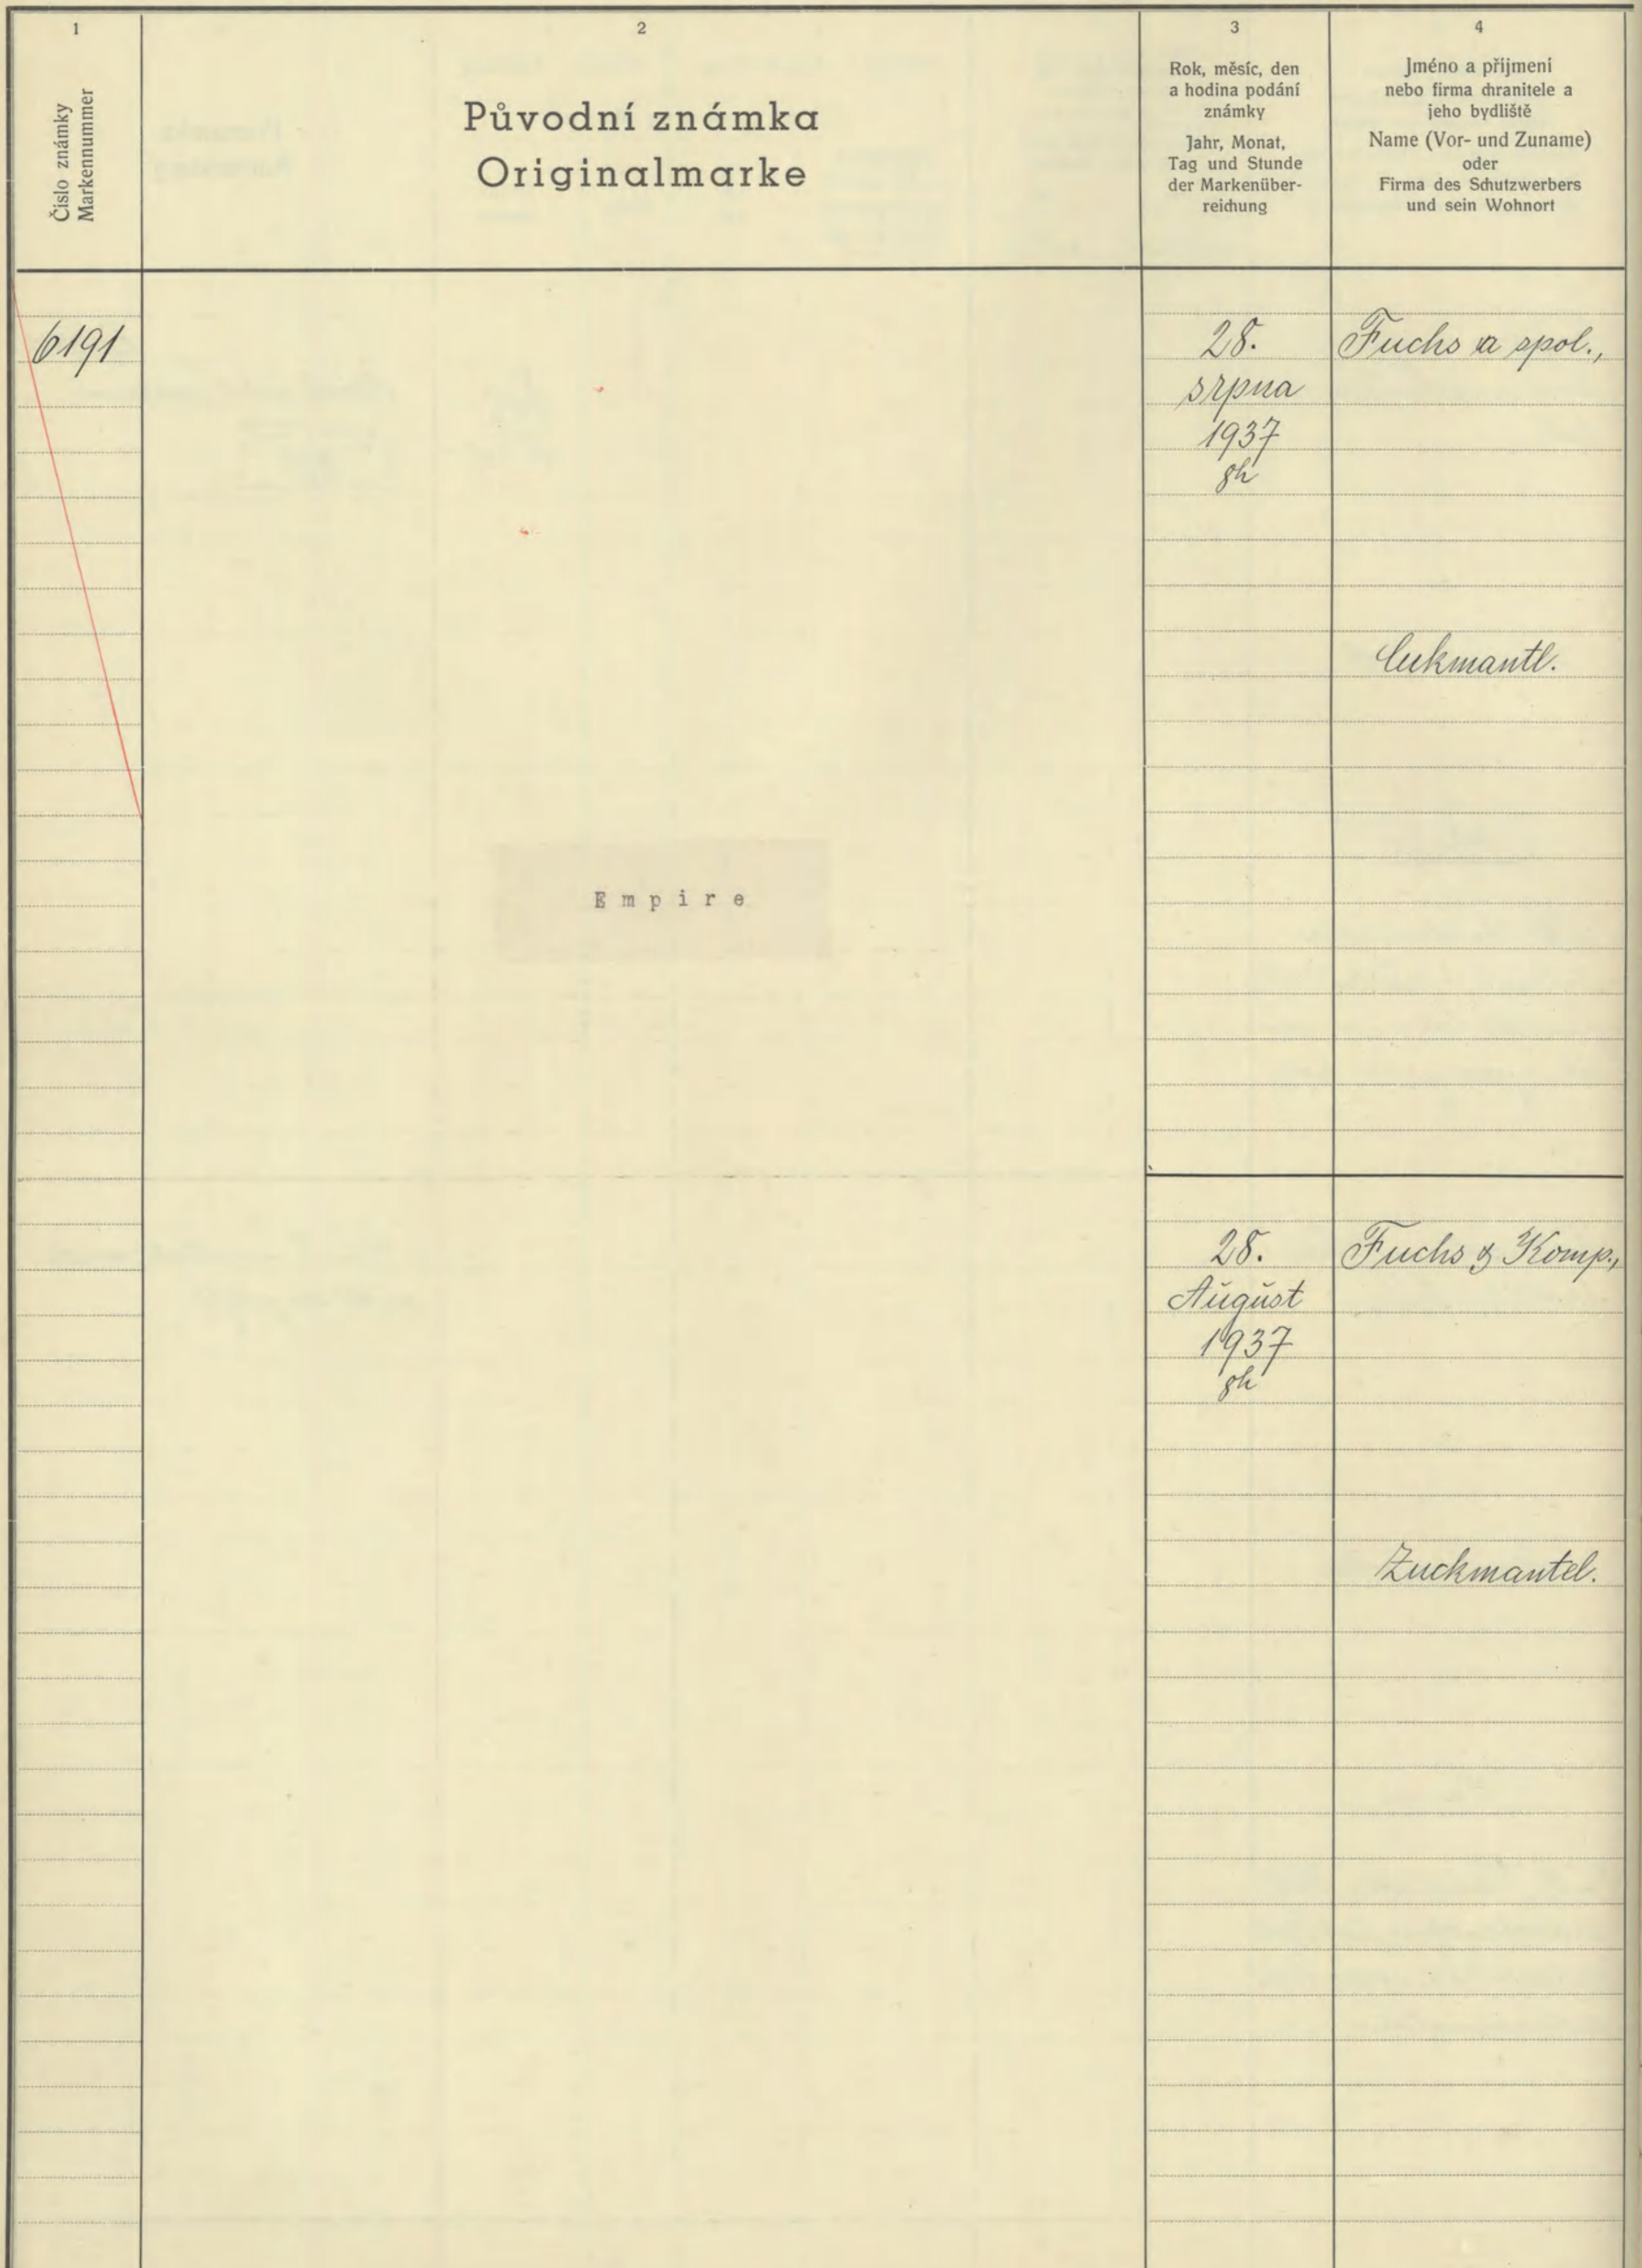 1
Číslo známky
Markennummer
2
Původní známka
Originalmarke
3
Rok, měsíc, den
a hodina podání
známky
Jahr, Monat,
Tag und Stunde
der Markenüber-
reichung
4
Jméno a příjmení
nebo firma chranitele a
jeho bydliště
Name (Vor- und Zuname)
oder
Firma des Schutzwerbers
und sein Wohnort
6191
Empire
28.
srpna
1937
8h
Fuchs a spol.,
Cukmantl.
28.
August
1937
8h
Fuchs & Komp.,
Zuckmantel.